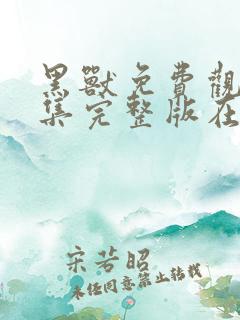 黑獸免費觀
集完整版在
宋芳昭
未经同意禁止转载